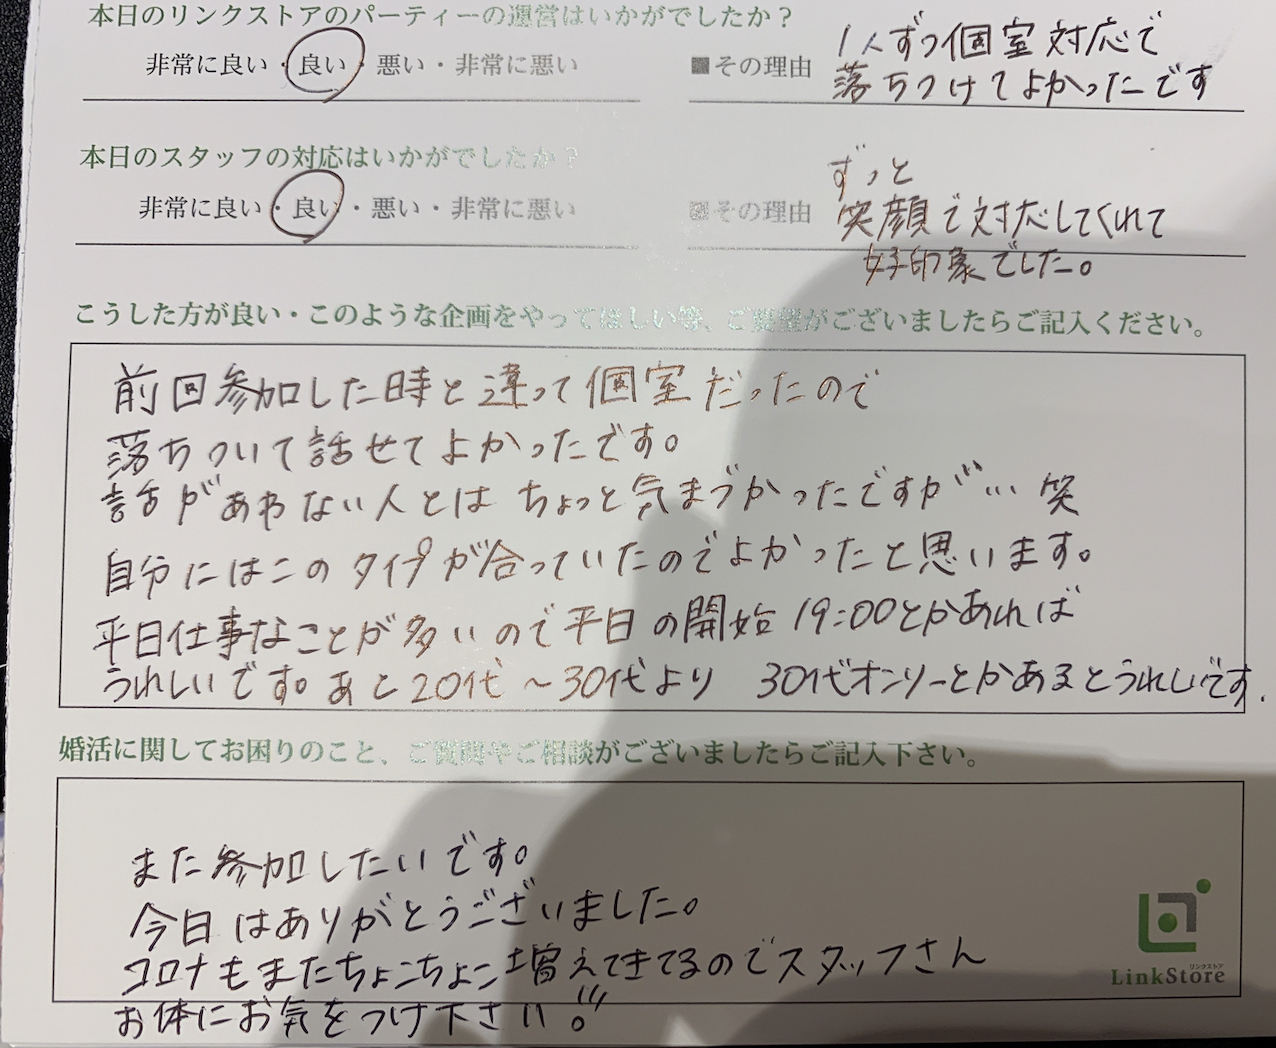 本日のリンクストアのパーティーの運営はいかがでしたか？
非常に良い・良い・悪い・非常に悪い
■その理由
1人ずつ個室対応で
落ちつけてよかったです
本日のスタッフの対応はいかがでしたか？
非常に良い・良い・悪い・非常に悪い
■その理由
ずっと
笑顔で対応してくれて
好印象でした。
こうした方が良い・このような企画をやってほしい等、ご要望がございましたらご記入ください。
前回参加した時と違って個室だったので
落ちついて話せてよかったです。
話があわない人とはちょっと気まづかったですが… 笑
自分にはこのタイプが合っていたのでよかったと思います。
平日仕事なことが多いので平日の開始19:00とかあれば
うれしいです。あと20代～30代より 30代オンリーとかあるとうれしいです.
婚活に関してお困りのこと、ご質問やご相談がございましたらご記入下さい。
また参加したいです。
今日はありがとうございました。
コロナもまたちょこちょこ増えてきてるのでスタッフさん
お体にお気をつけ下さい!!。
リンクストア
LinkStore